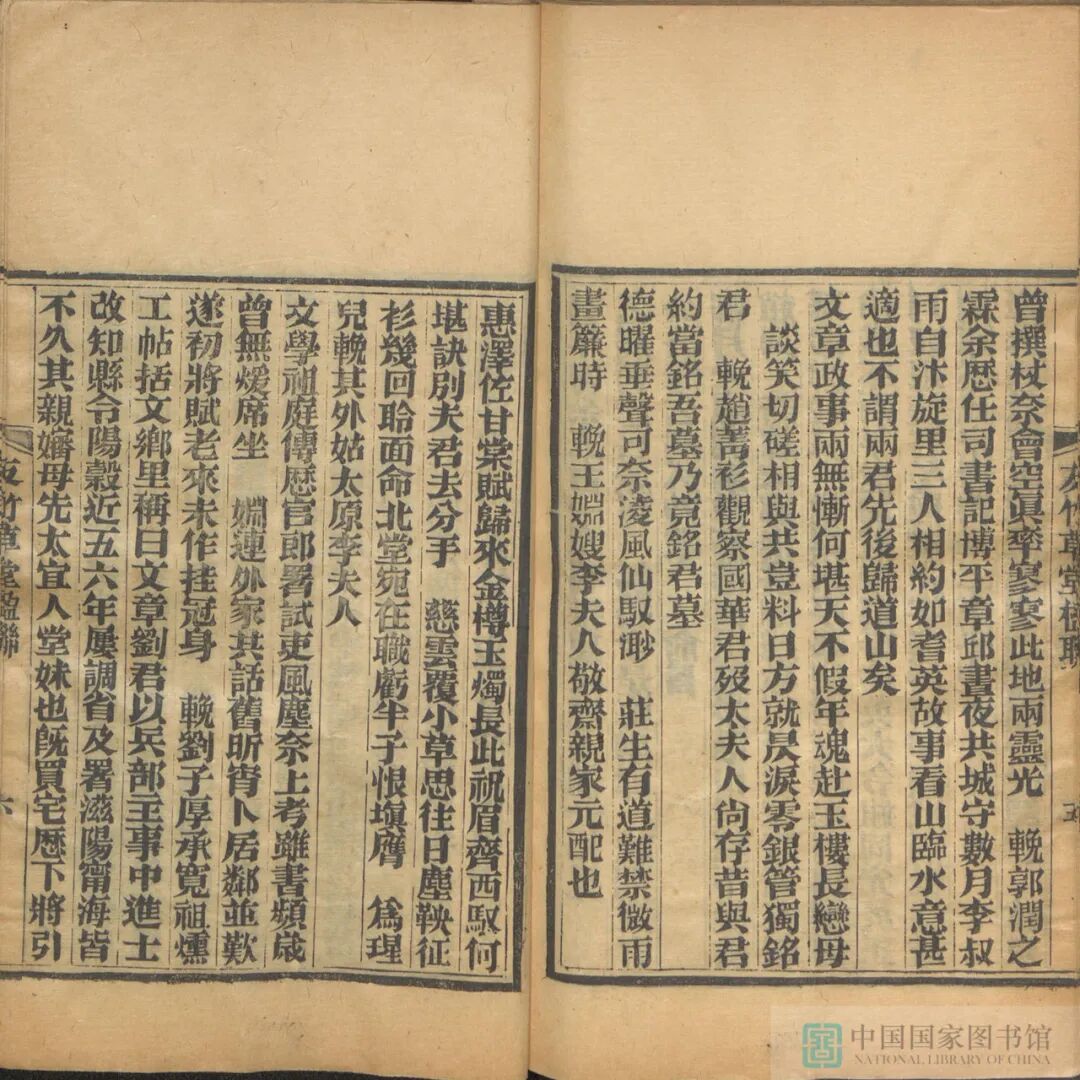 曾撰杖奈會空眞率寥寥此地兩靈光　輓郭潤之
霖余歷任司書記博平章邱晝夜共城守數月李叔
雨自汴旋里三人相約如耆英故事看山臨水意甚
適也不謂兩君先後歸道山矣
文章政事兩無慚何堪天不假年魂赴玉樓長戀母
談笑切磋相與共豈料日方就昃淚零銀管獨銘
君　輓趙菁衫觀察國華君歿太夫人尚存昔與君
約當銘吾墓乃竟銘君墓
德曜垂聲可奈淩風仙馭渺　莊生有道難禁微雨
畫簾時　輓王嫺嫂李夫人敬齋親家元配也
惠澤佐甘棠賦歸來金樽玉燭長此祝眉齊西馭何
堪訣別夫君去分手　慈雲覆小草思往日塵鞅征
衫幾回聆面命北堂宛在職虧半子恨塡膺　爲瑆
兒輓其外姑太原李夫人
文學祖庭傳歷官郎署試吏風塵奈上考雖書頻歲
曾無煖席坐　婣連外家其話舊昕宵卜居鄰並歎
遂初將賦老來未作挂冠身　輓劉子厚承寬祖燻
工帖括文鄉里稱曰文章劉君以兵部主事中進士
改知縣令陽穀近五六年屢調省及署滋陽甯海皆
不久其親嬸母先太宜人堂妹也旣買宅歷下將引
友竹草堂楹聯
六
中国国家图书馆
NATIONAL LIBRARY OF CHINA